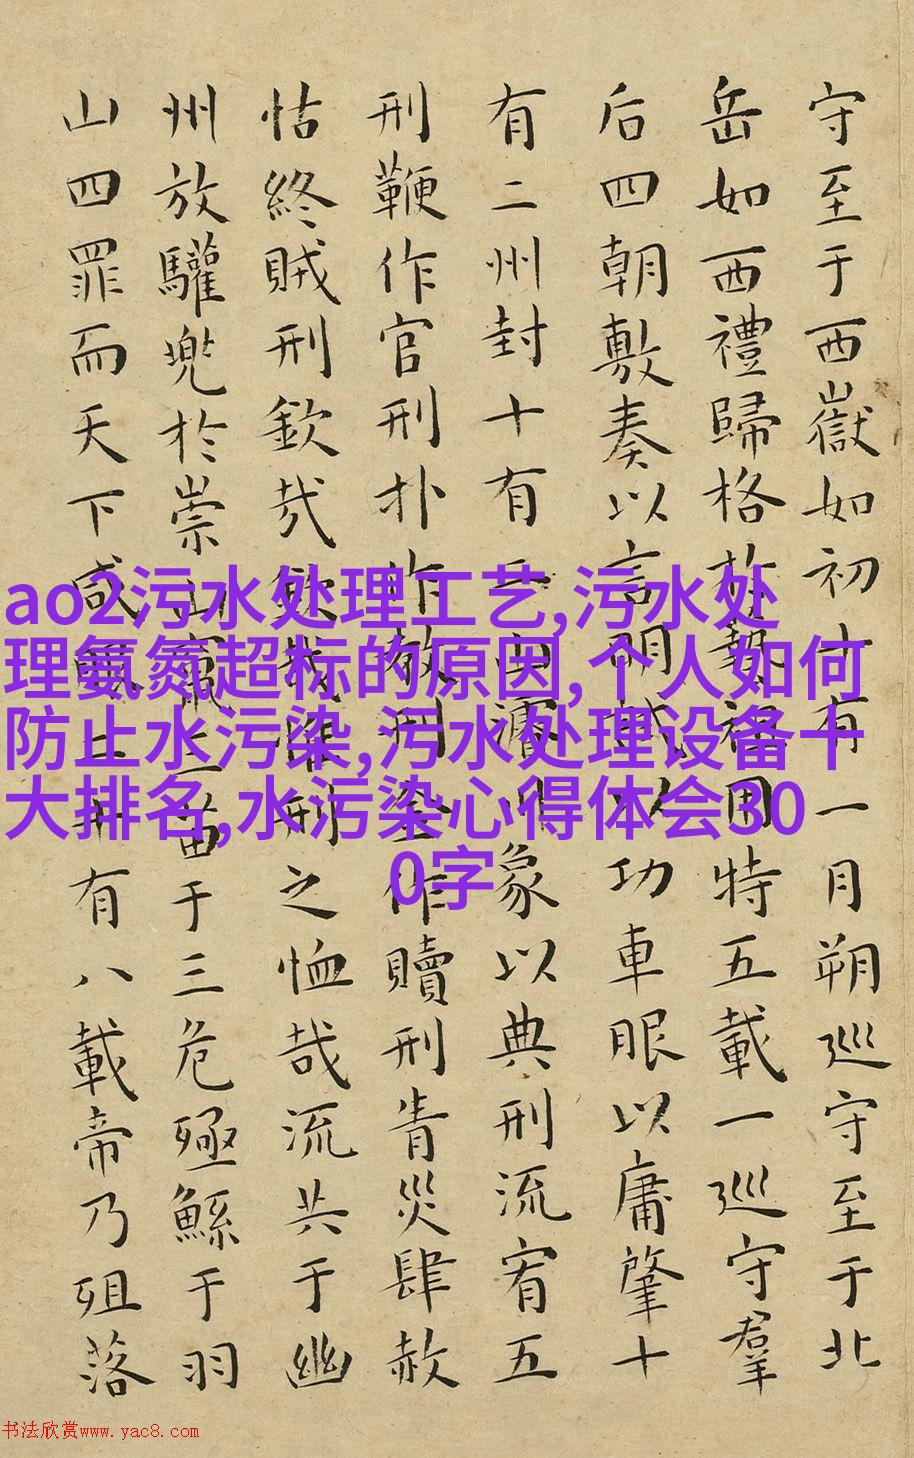 守至于西嶽如初十有一月朔巡守至于北
岳如西禮歸格於藝祖用特五載一巡守羣
后四朝敷奏以言明試以功車眼以庸肇十
有二州封十有二山濬川象以典刑流宥五
刑鞭作官刑扑作教刑金作贖刑眚災肆赦
怙終賊刑欽哉欽哉惟刑之恤哉流共于幽
州放驩兜於崇山竄三苗于三危殛鯀于羽
山四罪而天下咸服二十有八載帝乃殂落
ao2污水处理工艺,污水处
理氨氮超标的原因,个人如何
防止水污染,污水处理设备十
大排名,水污染心得体会30
0字
书法欣赏www.yac8.com